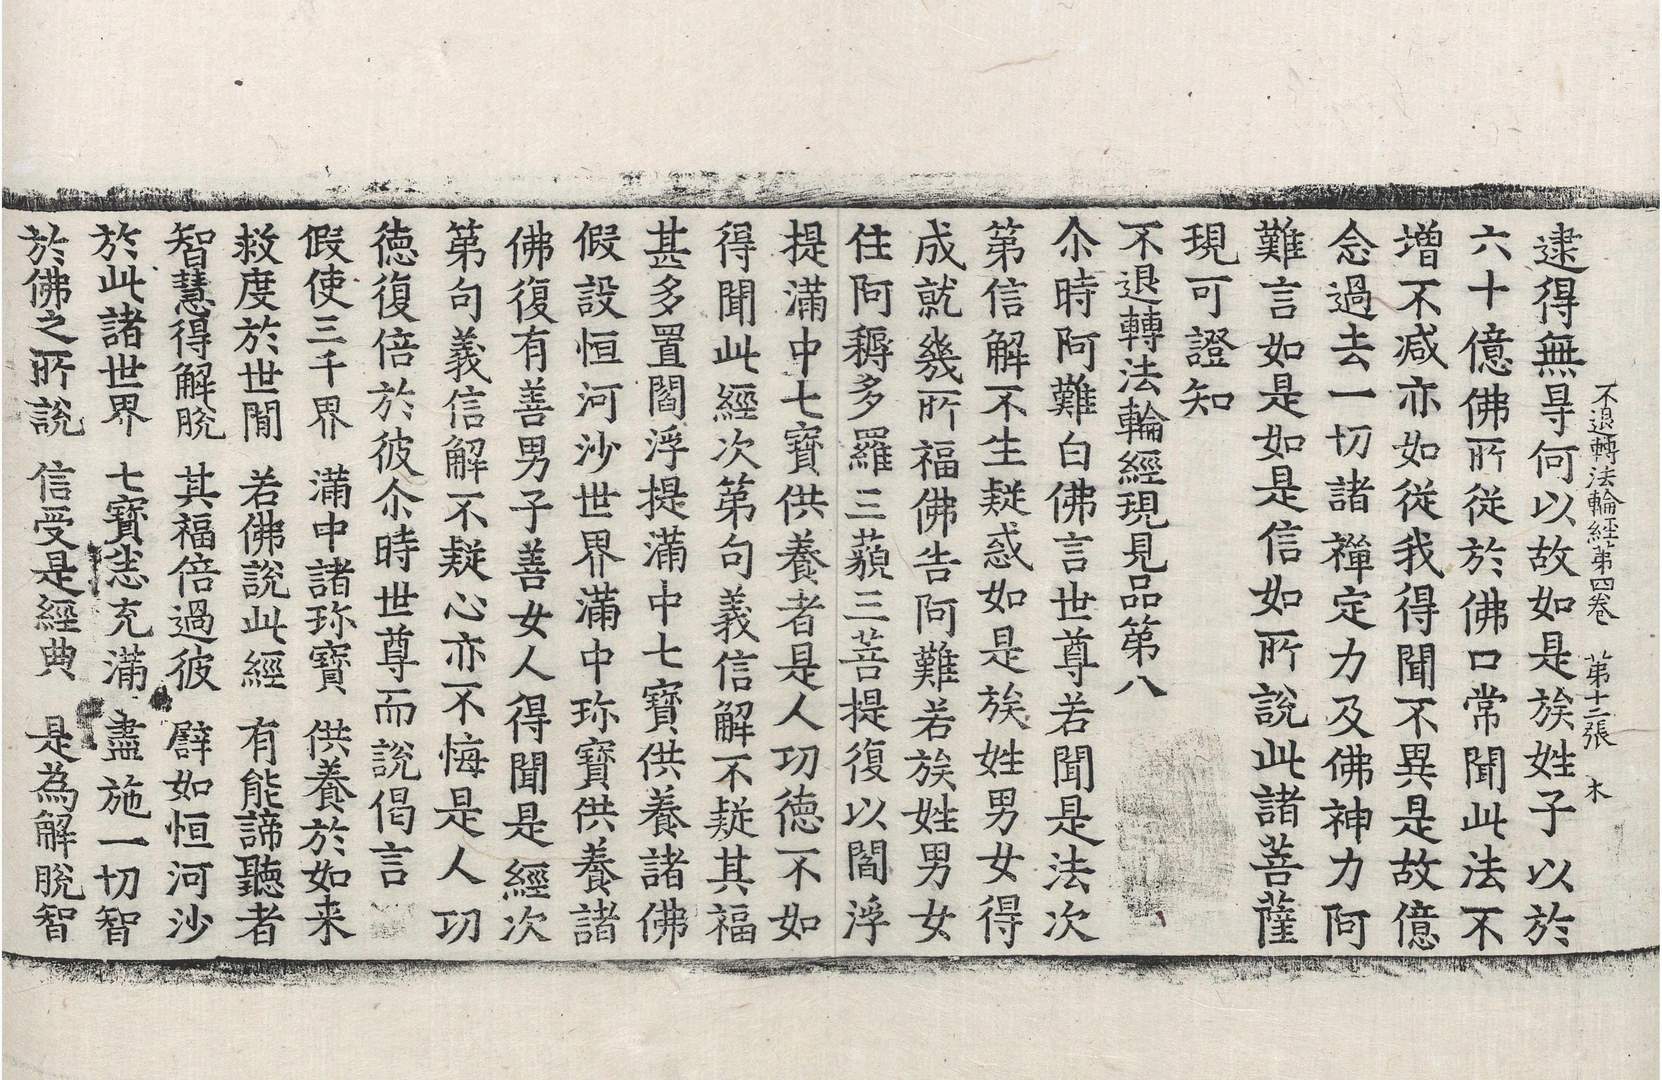 不退轉法輪經第四卷　第十二張　木
逮得無㝵何以故如是族姓子以於
六十億佛所從於佛口常聞此法不
增不減亦如從我得聞不異是故億
念過去一切諸禪定力及佛神力阿
難言如是如是信如所說此諸菩薩
現可證知
不退轉法輪經現見品第八
尒時阿難白佛言世尊若聞是法次
第信解不生疑惑如是族姓男女得
成就幾所福佛告阿難若族姓男女
住阿耨多羅三藐三菩提復以閻浮
提滿中七寶供養者是人功德不如
得聞此經次第句義信解不疑其福
甚多置閻浮提滿中七寶供養諸佛
假設恒河沙世界滿中珎寶供養諸
佛復有善男子善女人得聞是經次
第句義信解不疑心亦不悔是人功
德復倍於彼尒時世尊而說偈言
假使三千界　滿中諸珎寶　供養於如来
救度於世間　若佛說此經　有能諦聽者
智慧得解脫　其福倍過彼　譬如恒河沙
於此諸世界　七寶悉充滿　盡施一切智
於佛之所說　信受是經典　是為解脫智